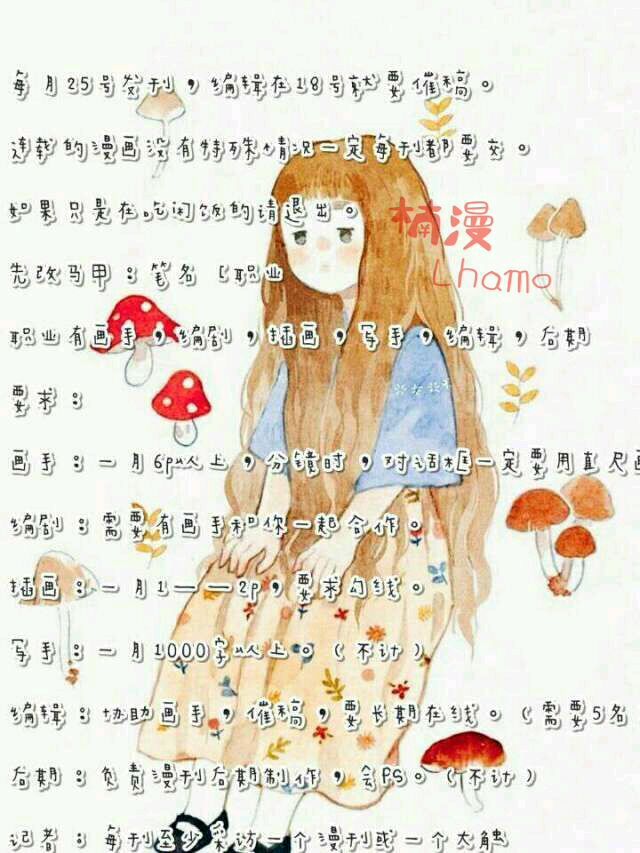 每月25号发刊，编辑在18号就要催稿。
连载的漫画没有特殊情况一定每刊都要交。
如果只是在吃闲饭的请退出。
楠漫
Lhamo
先改马甲：笔名［职业
职业有画手，编剧，插画，写手，编辑，后期
要求：
画手：一月6p以上，分镜时，对话框一定要用直尺画
编剧：需要有画手和你一起合作。
插画：一月1——2p，要求勾线。
写手：一月1000字以上。（不计）
编辑：协助画手，催稿，要长期在线。（需要5名
后期：负责漫刊后期制作，会PS。（不计）
记者：每刊至少采访一个漫刊或一个大触